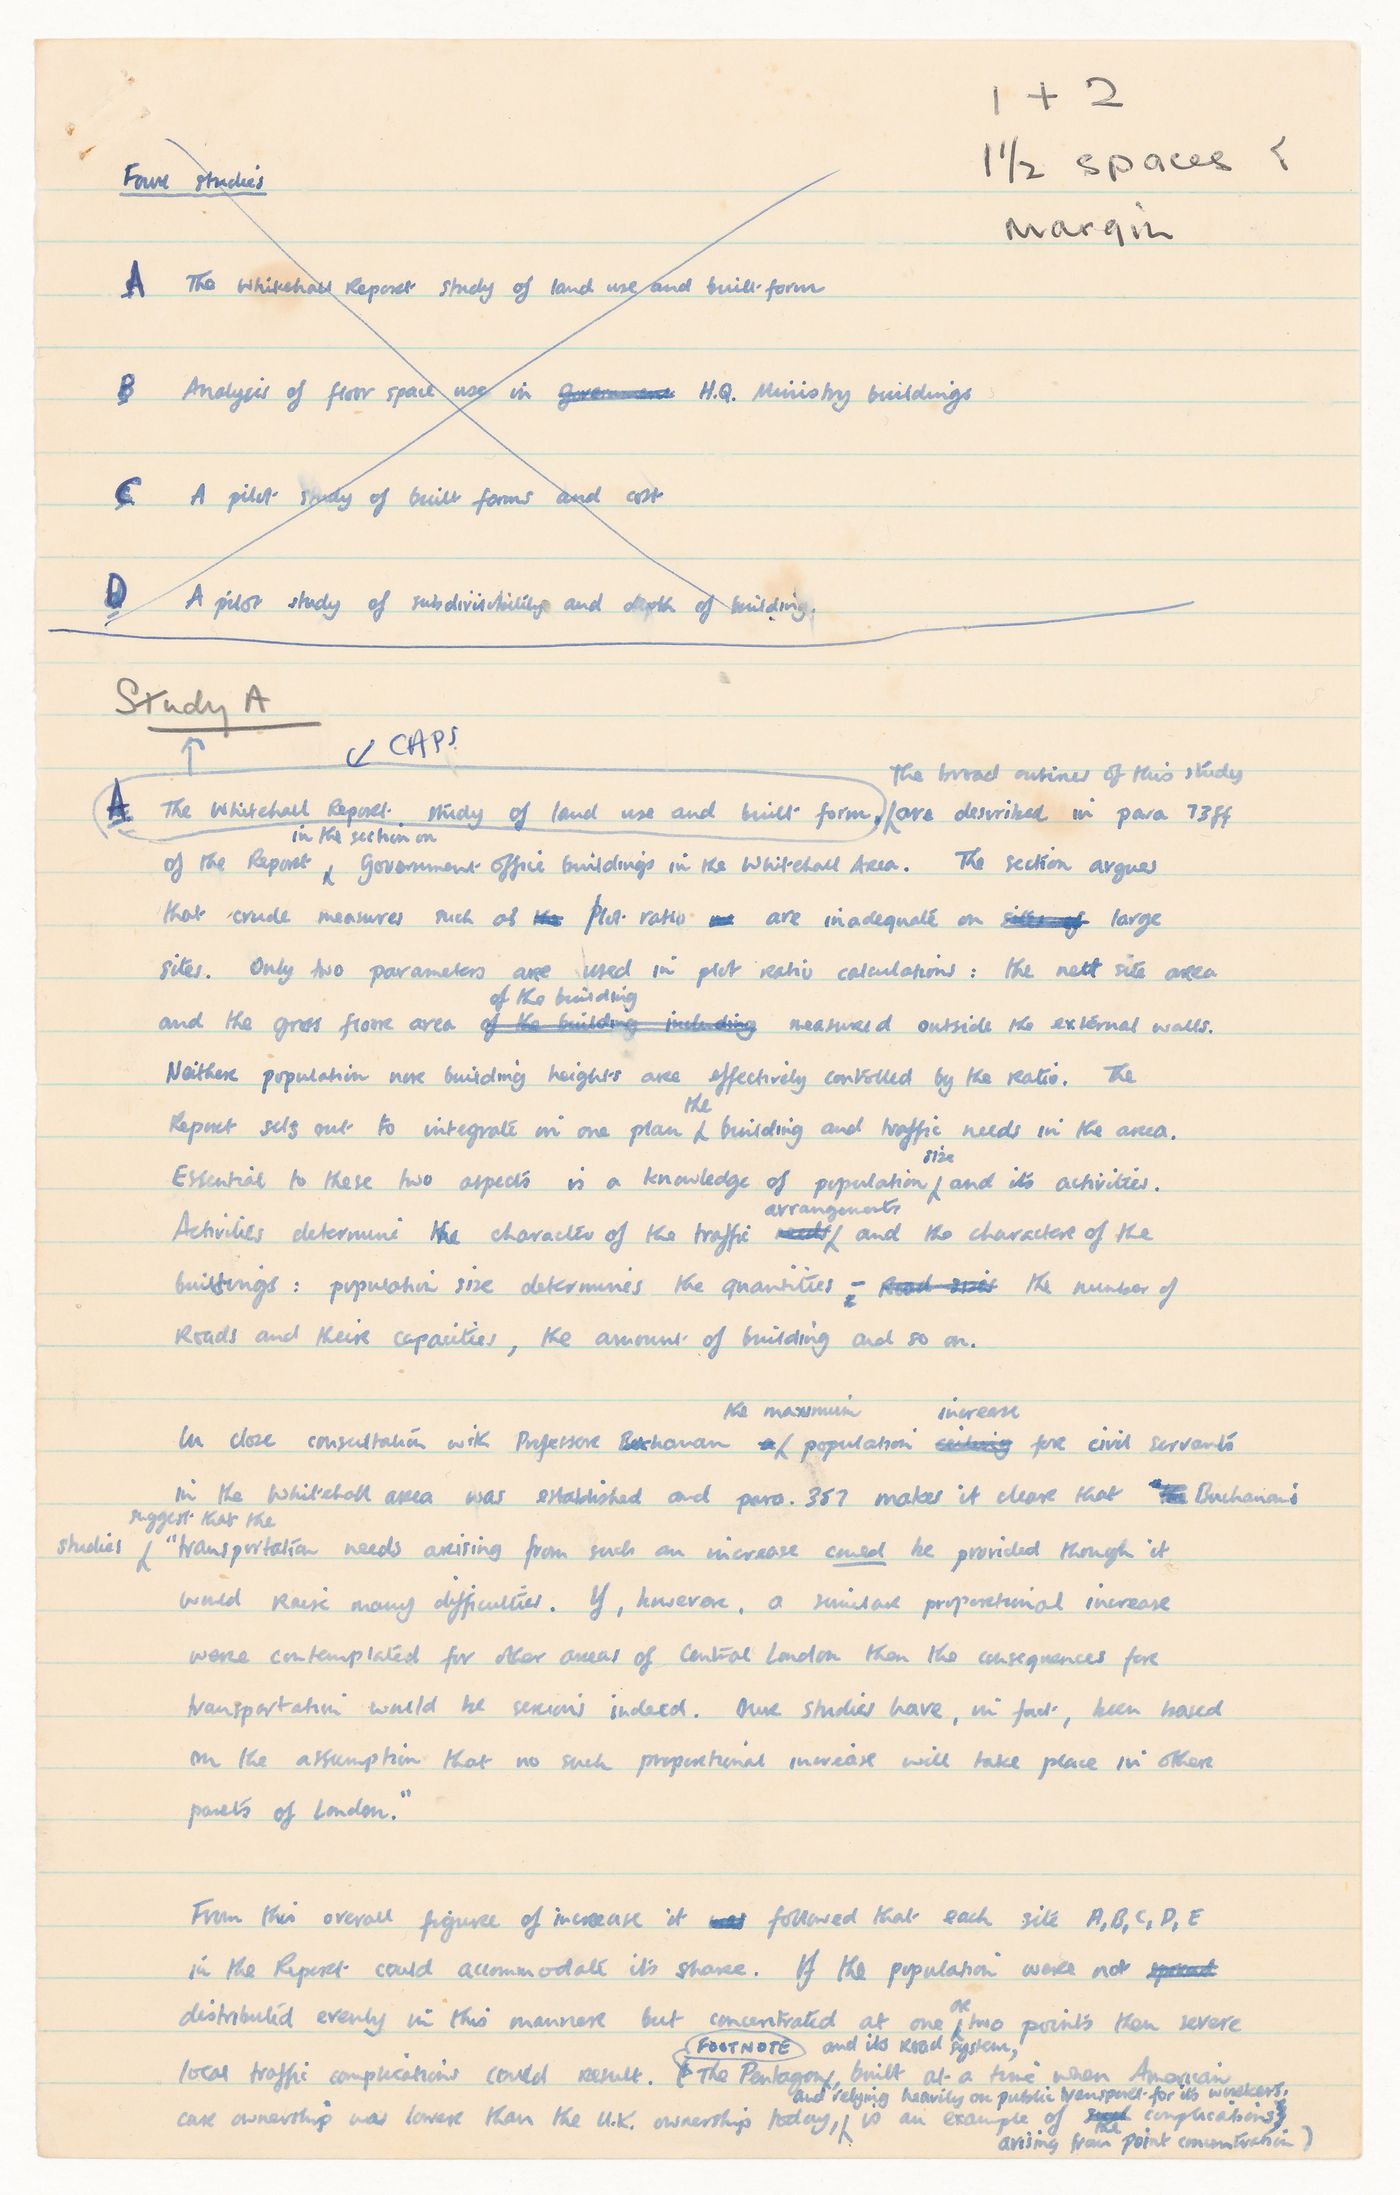 1 + 2
1 1/2 spaces &
margin
Four studies
A The Whitehall Report study of land use and built form
B Analysis of floor space use in Government H.Q. Ministry buildings
C A pilot study of built forms and cost
D A pilot study of subdivisibility and depth of building.
Study A
CAPS
The broad outlines of this study
A The Whitehall Report study of land use and built form, are described in para 73ff
in the section on
of the Report Government office buildings in the Whitehall Area. The section argues
that crude measures such as the plot ratio are inadequate on sites of large
sites. Only two parameters are used in plot ratio calculations: the nett site area
of the building
and the gross floor area of the building including measured outside the external walls.
Neither population nor building heights are effectively controlled by the ratio. The
the
Report sets out to integrate in one plan building and traffic needs in the area.
size
Essential to these two aspects is a knowledge of population and its activities.
arrangements
Activities determine the character of the traffic needs and the character of the
buildings: population size determines the quantities - Road sizes the number of
roads and their capacities, the amount of building and so on.
the maximum increase
In close consultation with Professor Buchanan a population ceiling for civil servants
in the Whitehall area was established and para. 357 makes it clear that "the Buchanan's
suggest that the
studies "transportation needs arising from such an increase could be provided though it
would raise many difficulties. If, however, a similar proportional increase
were contemplated for other areas of Central London then the consequences for
transportation would be serious indeed. Our studies have, in fact, been based
on the assumption that no such proportional increase will take place in other
parts of London."
From this overall figure of increase it was followed that each site A, B, C, D, E
in the Report could accommodate its share. If the population were not spread
distributed evenly in this manner but concentrated at one two points then severe
or
FOOTNOTE and its road system,
local traffic complications could result. (The Pentagon, built at a time when American
and relying heavily on public transport for its workers,
car ownership was lower than the U.K. ownership today, is an example of such complications
the
arising from point concentration)